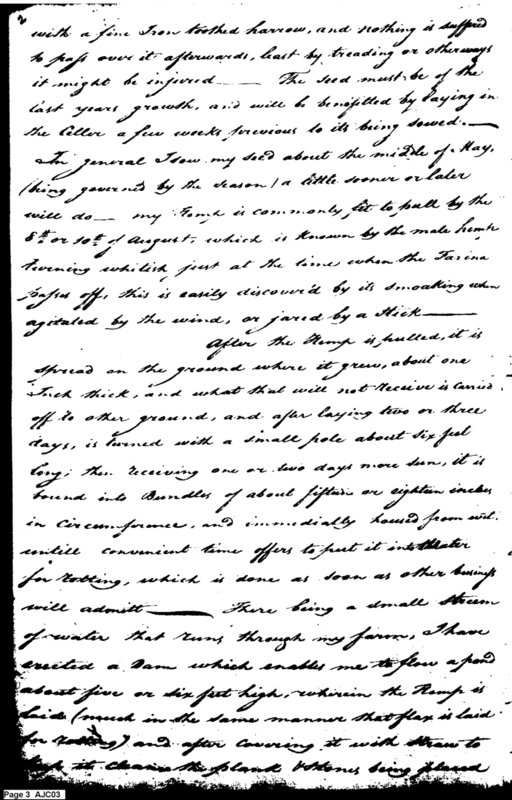 2
with a fine Iron toothed harrow, and nothing is suffered
to pass over it afterwards, least by treading or otherways
it might be injured — The seed must be of the
last years growth, and will be benefitted by laying in
the Celler a few weeks previous to its being sowed. —
In general I sow my seed about the middle of May,
(being governed by the season) a little sooner or later
will do — my Hemp is commonly fit to pull by the
8th or 10th of August, which is known by the male hemp
turning whitish, just at the time when the Farina
passes off, this is easily discover'd by its smoaking when
agitated by the wind, or jared by a Stick —
After the Hemp is pulled, it is
spread on the ground where it grew, about one
Inch thick, and what that will not receive is carried
off to other ground, and after laying two or three
days, is turned with a small pole about six feet
long; then receiving one or two days more sun, it is
bound into Bundles of about fifteen or eighteen inches
in Circumference, and immediatly housed from wet.
untill convenient time offers to put it into Water
for rotting, which is done as soon as other business
will admitt — There being a small Stream
of water that runs through my farm, I have
erected a Dam which enables me to flow a pond
about five or six feet high, wherein the Hemp is
laid (much in the same manner that flax is laid
for rotting) and after covering it with straw to
it clean the plank & Stones being placed
Page 3 AJC03